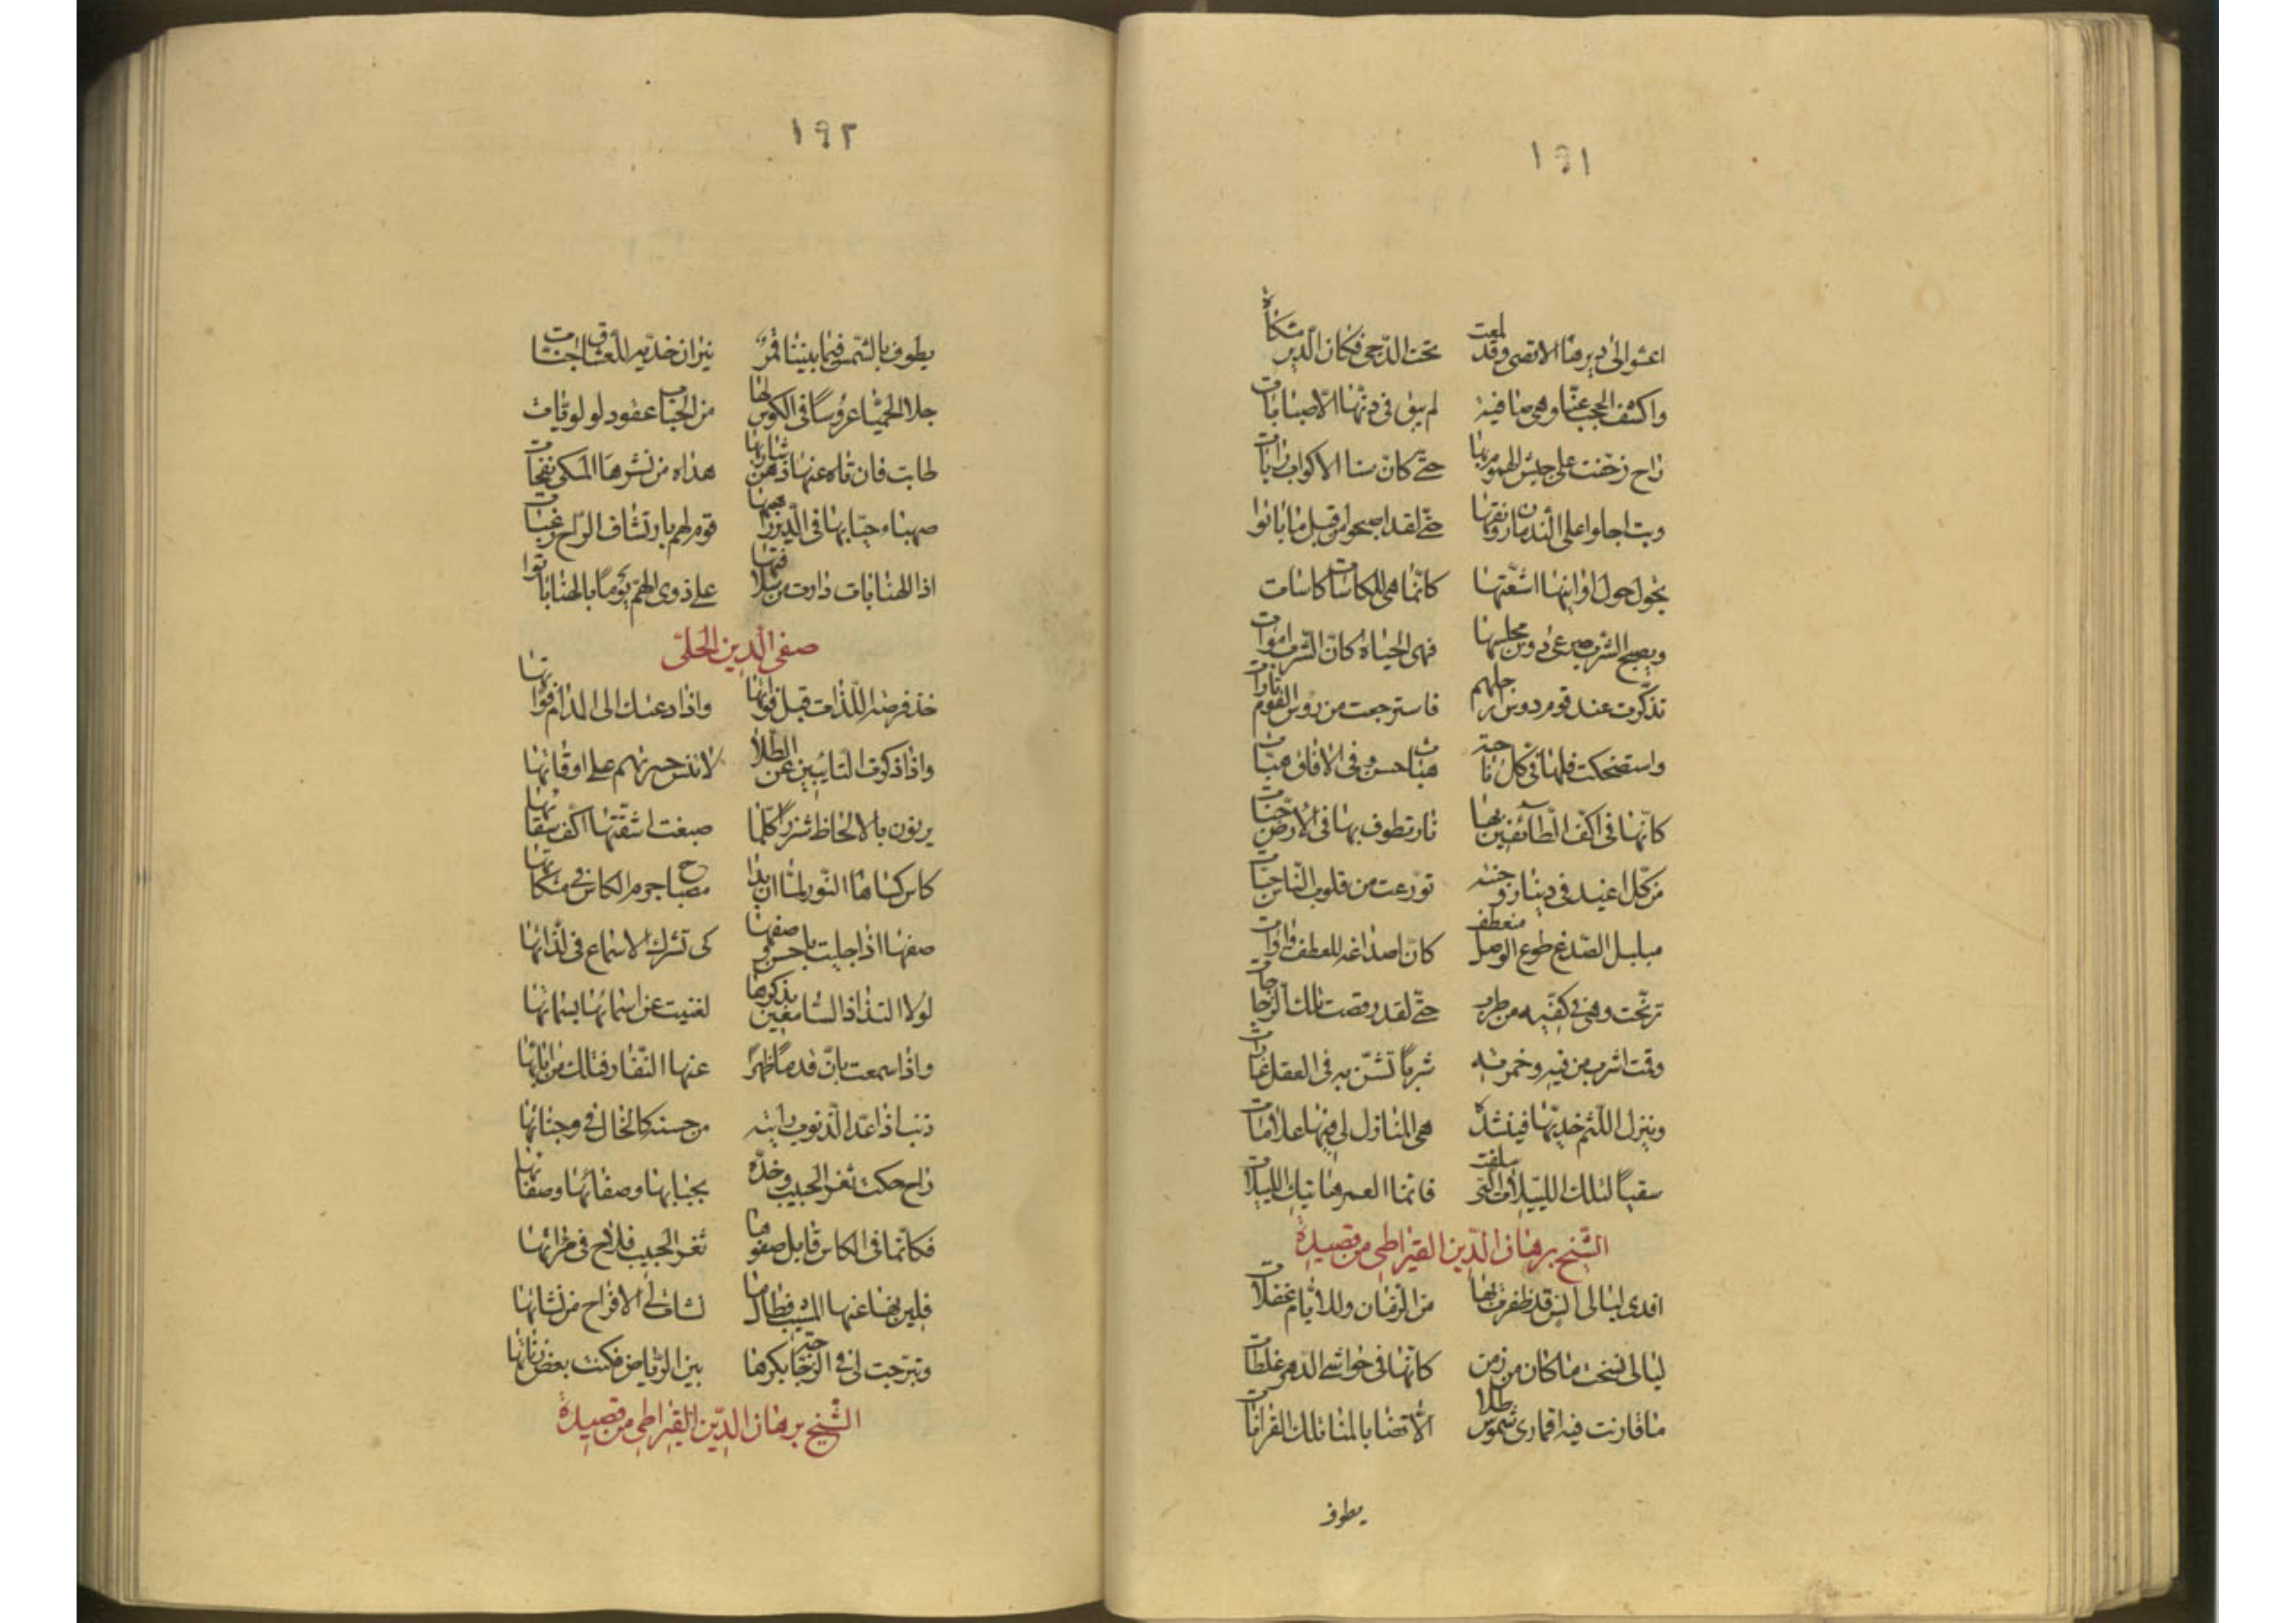 ١٩١
اعشو الى ديرها الاقصى وقد لمعت تحت الدجى فكان الدير مشكاة
واكشف الحجب عنها وهي صافية لم يبق في دنها الا صبابات
راح زحفت على جيش الهموم بها حتى كان سنا الاكواب رايات
وبت اجلوا على الندمان رونقها حتى لقد اصبحوا من قبل ما باتوا
تجول حول اوانيها اشعتها كانما هي للكاسات كاسات
ويصبح الشرب صرعى دون مجلسها فهي الحياة كان الشرب اموات
تذكرت عند قوم دوس ارجلهم فاسترجعت من رؤس القوم ثارات
واستضحكت فلها في كل ناحية هبات حسن وفي الافاق هبات
كانها في اكف الطائفين بها نار تطوف بها في الارض جنات
من كل اغيد في دينار وجنته توزعت من قلوب الناس حبات
مبلبل الصدغ طوع الوصل منعطف كان اصداغه للعطف واوات
ترنحت وهي في كفيه من طرب حتى لقد رقصت تلك الزجاجات
وقمت اشرب من فيه وخمرته شربا تشن به في العقل غارات
وينزل اللثم خديها فينشده هي المنازل لي فيها علامات
سقيا لتلك اللييلات التي سلفت فانما العمر هاتيك اللييلات
الشيخ برهان الدين القيراطي من قصيدة
افدى ليالى انس قد ظفرت بها من الزمان وللايام غفلات
ليالى نسخت ما كان من زمن كانها في حواشي الدهر غلطات
ما قارنت فيه اقمارى شموس طلا الا قضا بالمنا تلك القرانات
يطوف
١٩٢
يطوف بالشمس فيما بيننا قمر نيران خديه للعشاق جنات
جلا الحميا عروسا في الكوس لها من الحباب عقود لولويات
طابت فان تاه عنها ذهن شاربها هداه من نشرها المسكى نفحات
صهباء حبابها في الدير قوم لهم بارتشاف الراح رغبات
اذا الهنابات دارت من على ذوى الهم يوما بالهنا باتوا
صفى الدين الحلى
خذ فرصة اللذات قبل فواتها واذا دعتك الى المدام فواتها
واذا ذكرت التايبين عن الطلا لا تنس حسرتهم على اوقاتها
يرنون بالالحاظ شزرا كلما صبغت اشعتها اكف سقاتها
كاس كساها النور لما ان بدا مصباح جرم الكاس في مشكاتها
صفها اذا جليت باحسن وصفها كى تشرك الاسماع في لذاتها
لولا التذاذ السامعين بذكرها لغنيت عن اسمائها بسماتها
واذا سمعت بان قدما مظهرا عنها النفار فتلك من اياتها
ذنب اذا عد الذنوب رايته من حسنه كالخال في وجناتها
راح حكت ثغر الحبيب وخده بحبابها وصفائها وصفاتها
فكأنما في الكاس قابل صفوها ثغر الحبيب فلاح في مراتها
فلين نهاني عنها المشيب فطالما نشات لى الافراح من نشاتها
وتبرجت لى في الزجاجة بكرها بين الرياض فكنت بعض زناتها
الشيخ برهان الدين القيراطي من قصيدة